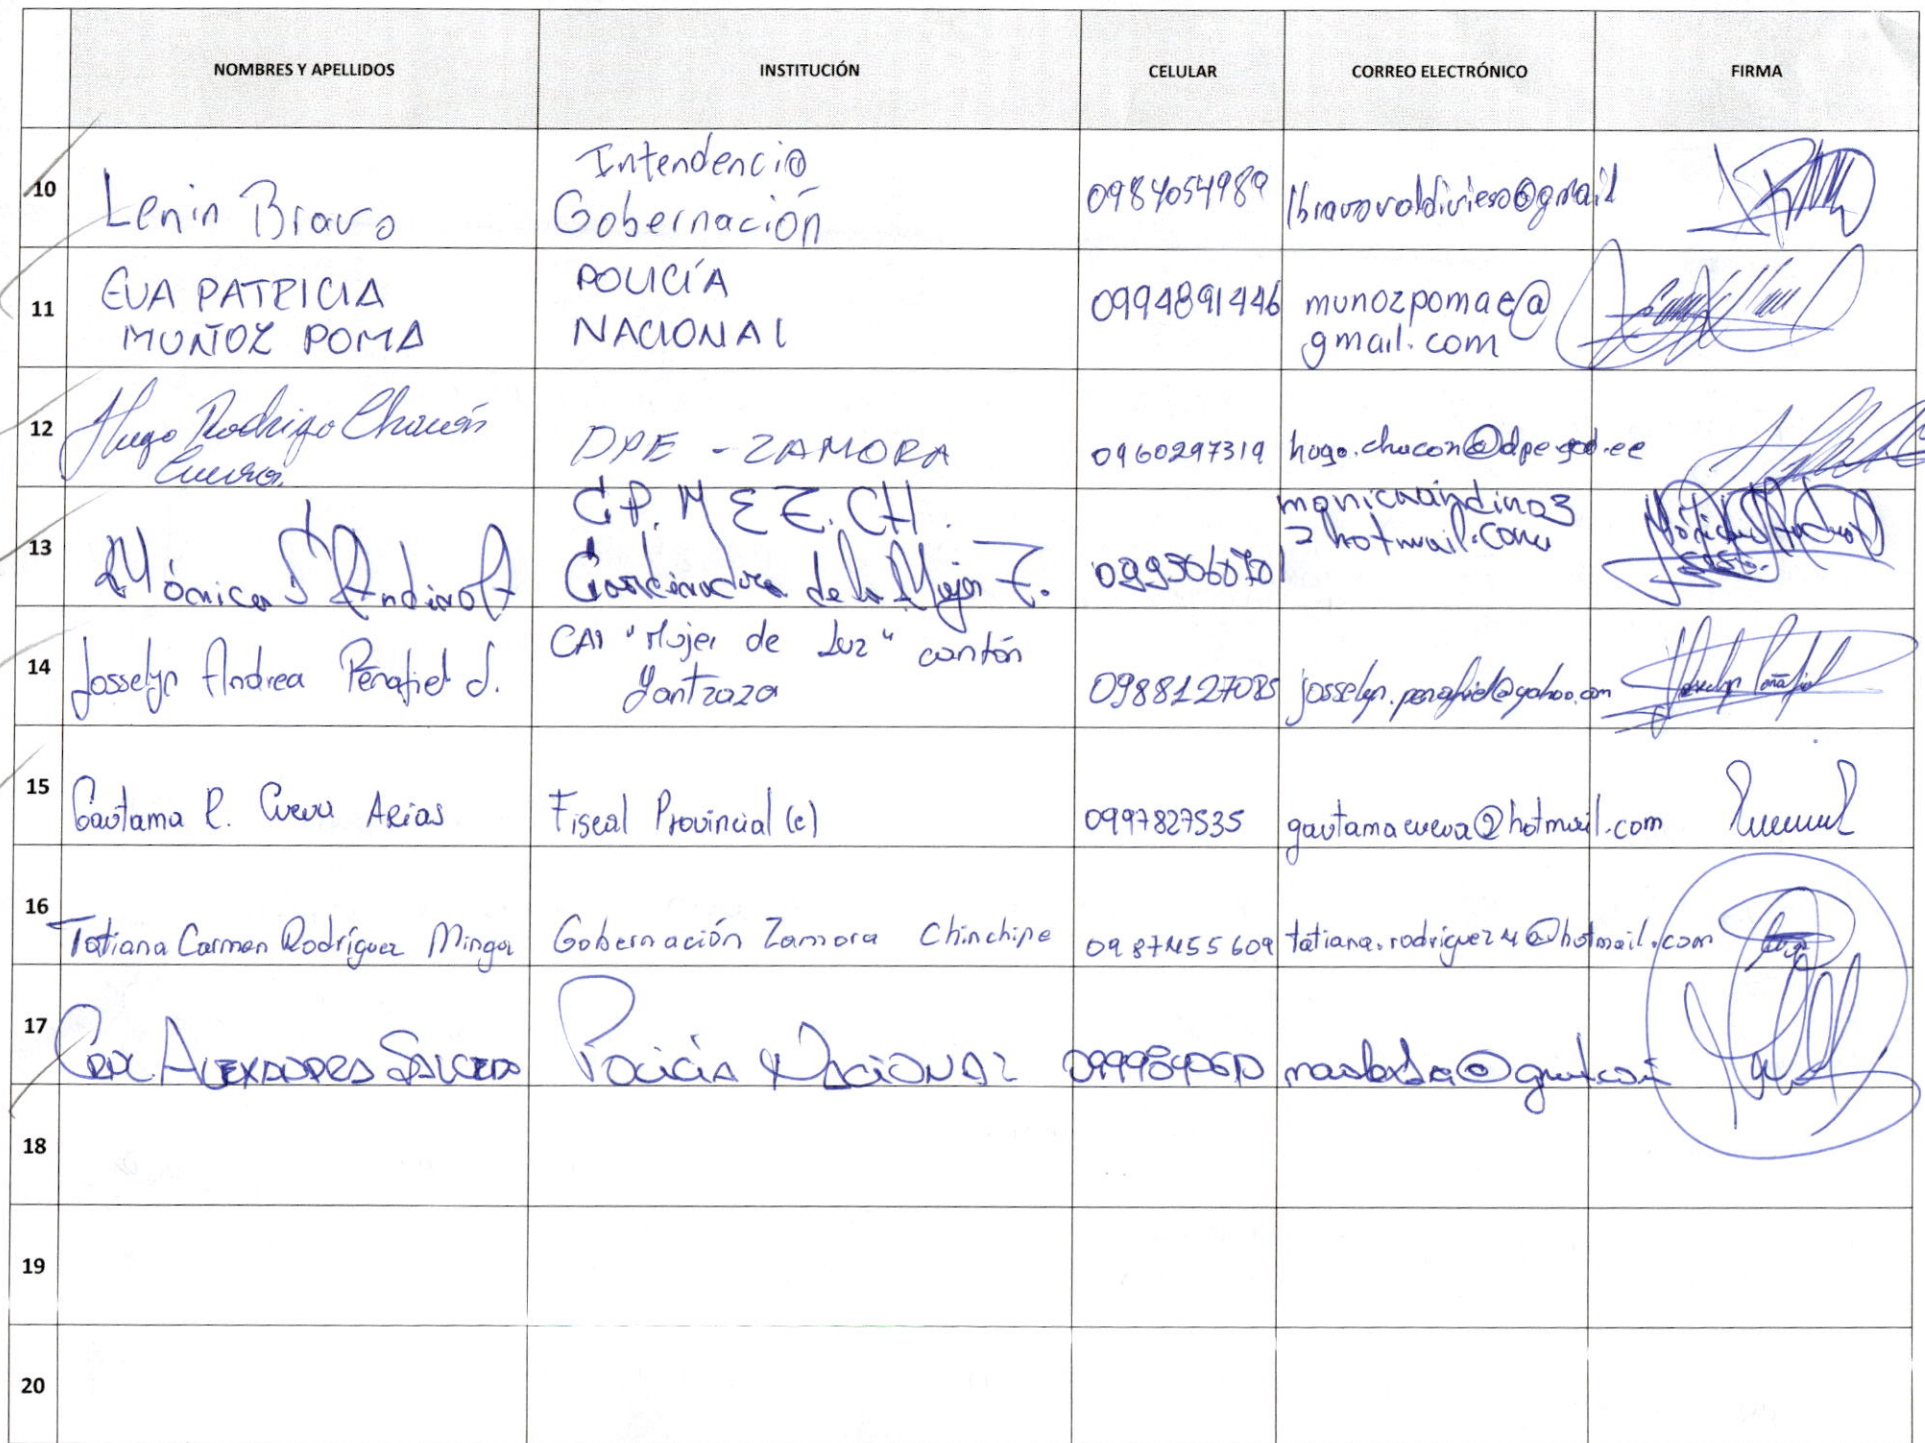 NOMBRES Y APELLIDOS INSTITUCIÓN CELULAR CORREO ELECTRÓNICO FIRMA
10 Lenin Bravo Intendencia Gobernación 0984054989 lbravovaldivieso@gmail
11 EVA PATRICIA MUÑOZ POMA POLICÍA NACIONAL 0994891446 munozpomae@gmail.com
12 Hugo Rodrigo Chacón Cueva. DPE - ZAMORA 0960297319 hugo.chacon@dpe.gob.ec
13 Mónica Andino C.P.M E Z.CH. Coordinadora de la Mujer Z. monicaandino3 hotmail.com
14 Josselyn Andrea Peñafiel J. CAI "Mujer de Luz" cantón Yantzaza 0988127085 josselyn.penafiel@yahoo.com
15 Gautama R. Cueva Arias Fiscal Provincial (e) 0997827535 gautamacueva@hotmail.com
16 Tatiana Carmen Rodríguez Minga Gobernación Zamora Chinchipe 0987455609 tatiana.rodriguez4@hotmail.com
17 ALEXANDRA SALCEDO POLICÍA NACIONAL
18
19
20